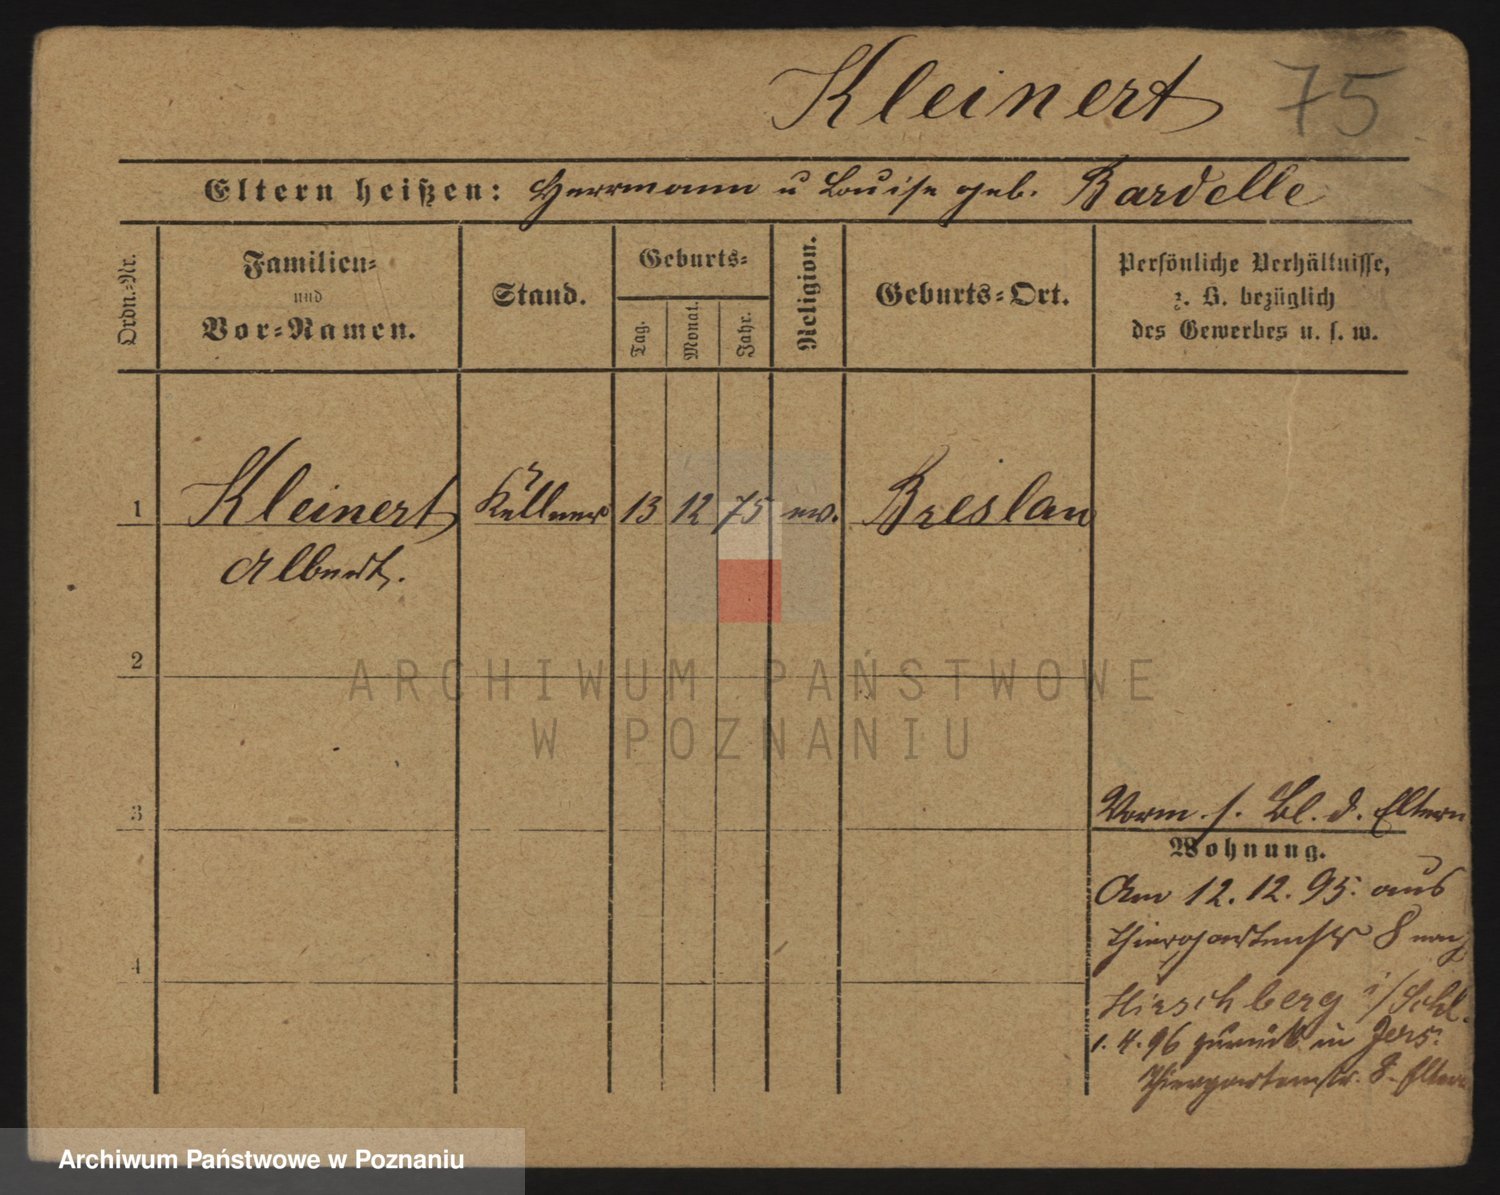 Kleinert 75
Eltern heißen: Herrmann u Louise geb. Bardelle
Ordn.-Nr.
Familien-
und
Vor-Namen.
Stand.
Geburts-
Tag.
Monat.
Jahr.
Religion.
Geburts-Ort.
Persönliche Verhältnisse,
z. B. bezüglich
des Gewerbes u. s. w.
1 Kleinert Kellner 13 12 75 ev. Breslau
Albert.
2
ARCHIWUM PAŃSTWOWE
W POZNANIU
3
Vorm. s. Bl. d. Eltern
Wohnung.
Am 12.12.95. aus
Thiergartenstr 8 nach
4
Hirschberg i/Schl.
1.4.96 zurück in Jers.
Thiergartenstr. 8 Eltern
Archiwum Państwowe w Poznaniu